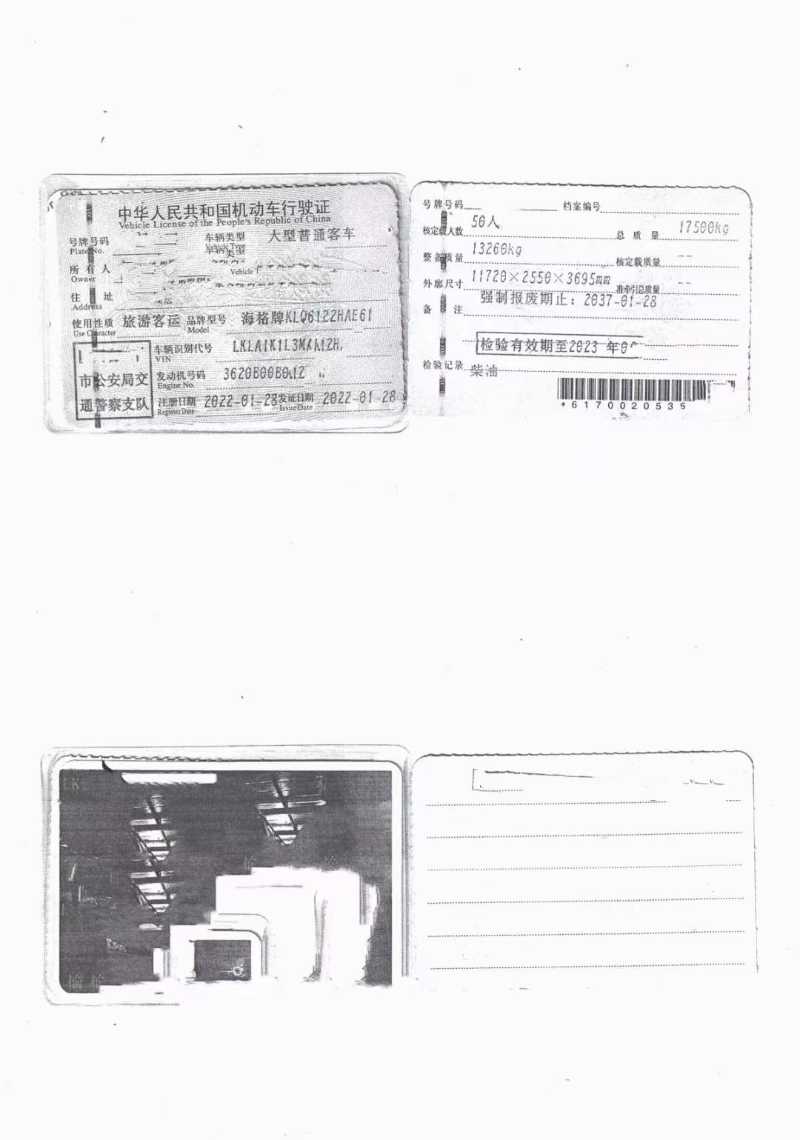 中华人民共和国机动车行驶证
Vehicle License of the People's Republic of China
号牌号码 车辆类型 大型普通客车
Plate No. Vehicle Type
车辆类型
所有人
Owner Vehicle
住 址
Address
使用性质 旅游客运 品牌型号 海格牌KLQ6122HAE61
Use Character Model
车辆识别代号
VIN
市公安局交
通警察支队
发动机号码
Engine No.
注册日期 2022-01-28 发证日期 2022-01-28
Register Date Issue Date
号牌号码 档案编号
核定载人数 50人 总质量 17500kg
整备质量 13260kg 核定载质量 --
外廓尺寸 11720×2550×3695 准牵引总质量 --
备 注 强制报废期止：2037-01-28
检验有效期至2023 年
检验记录 柴油